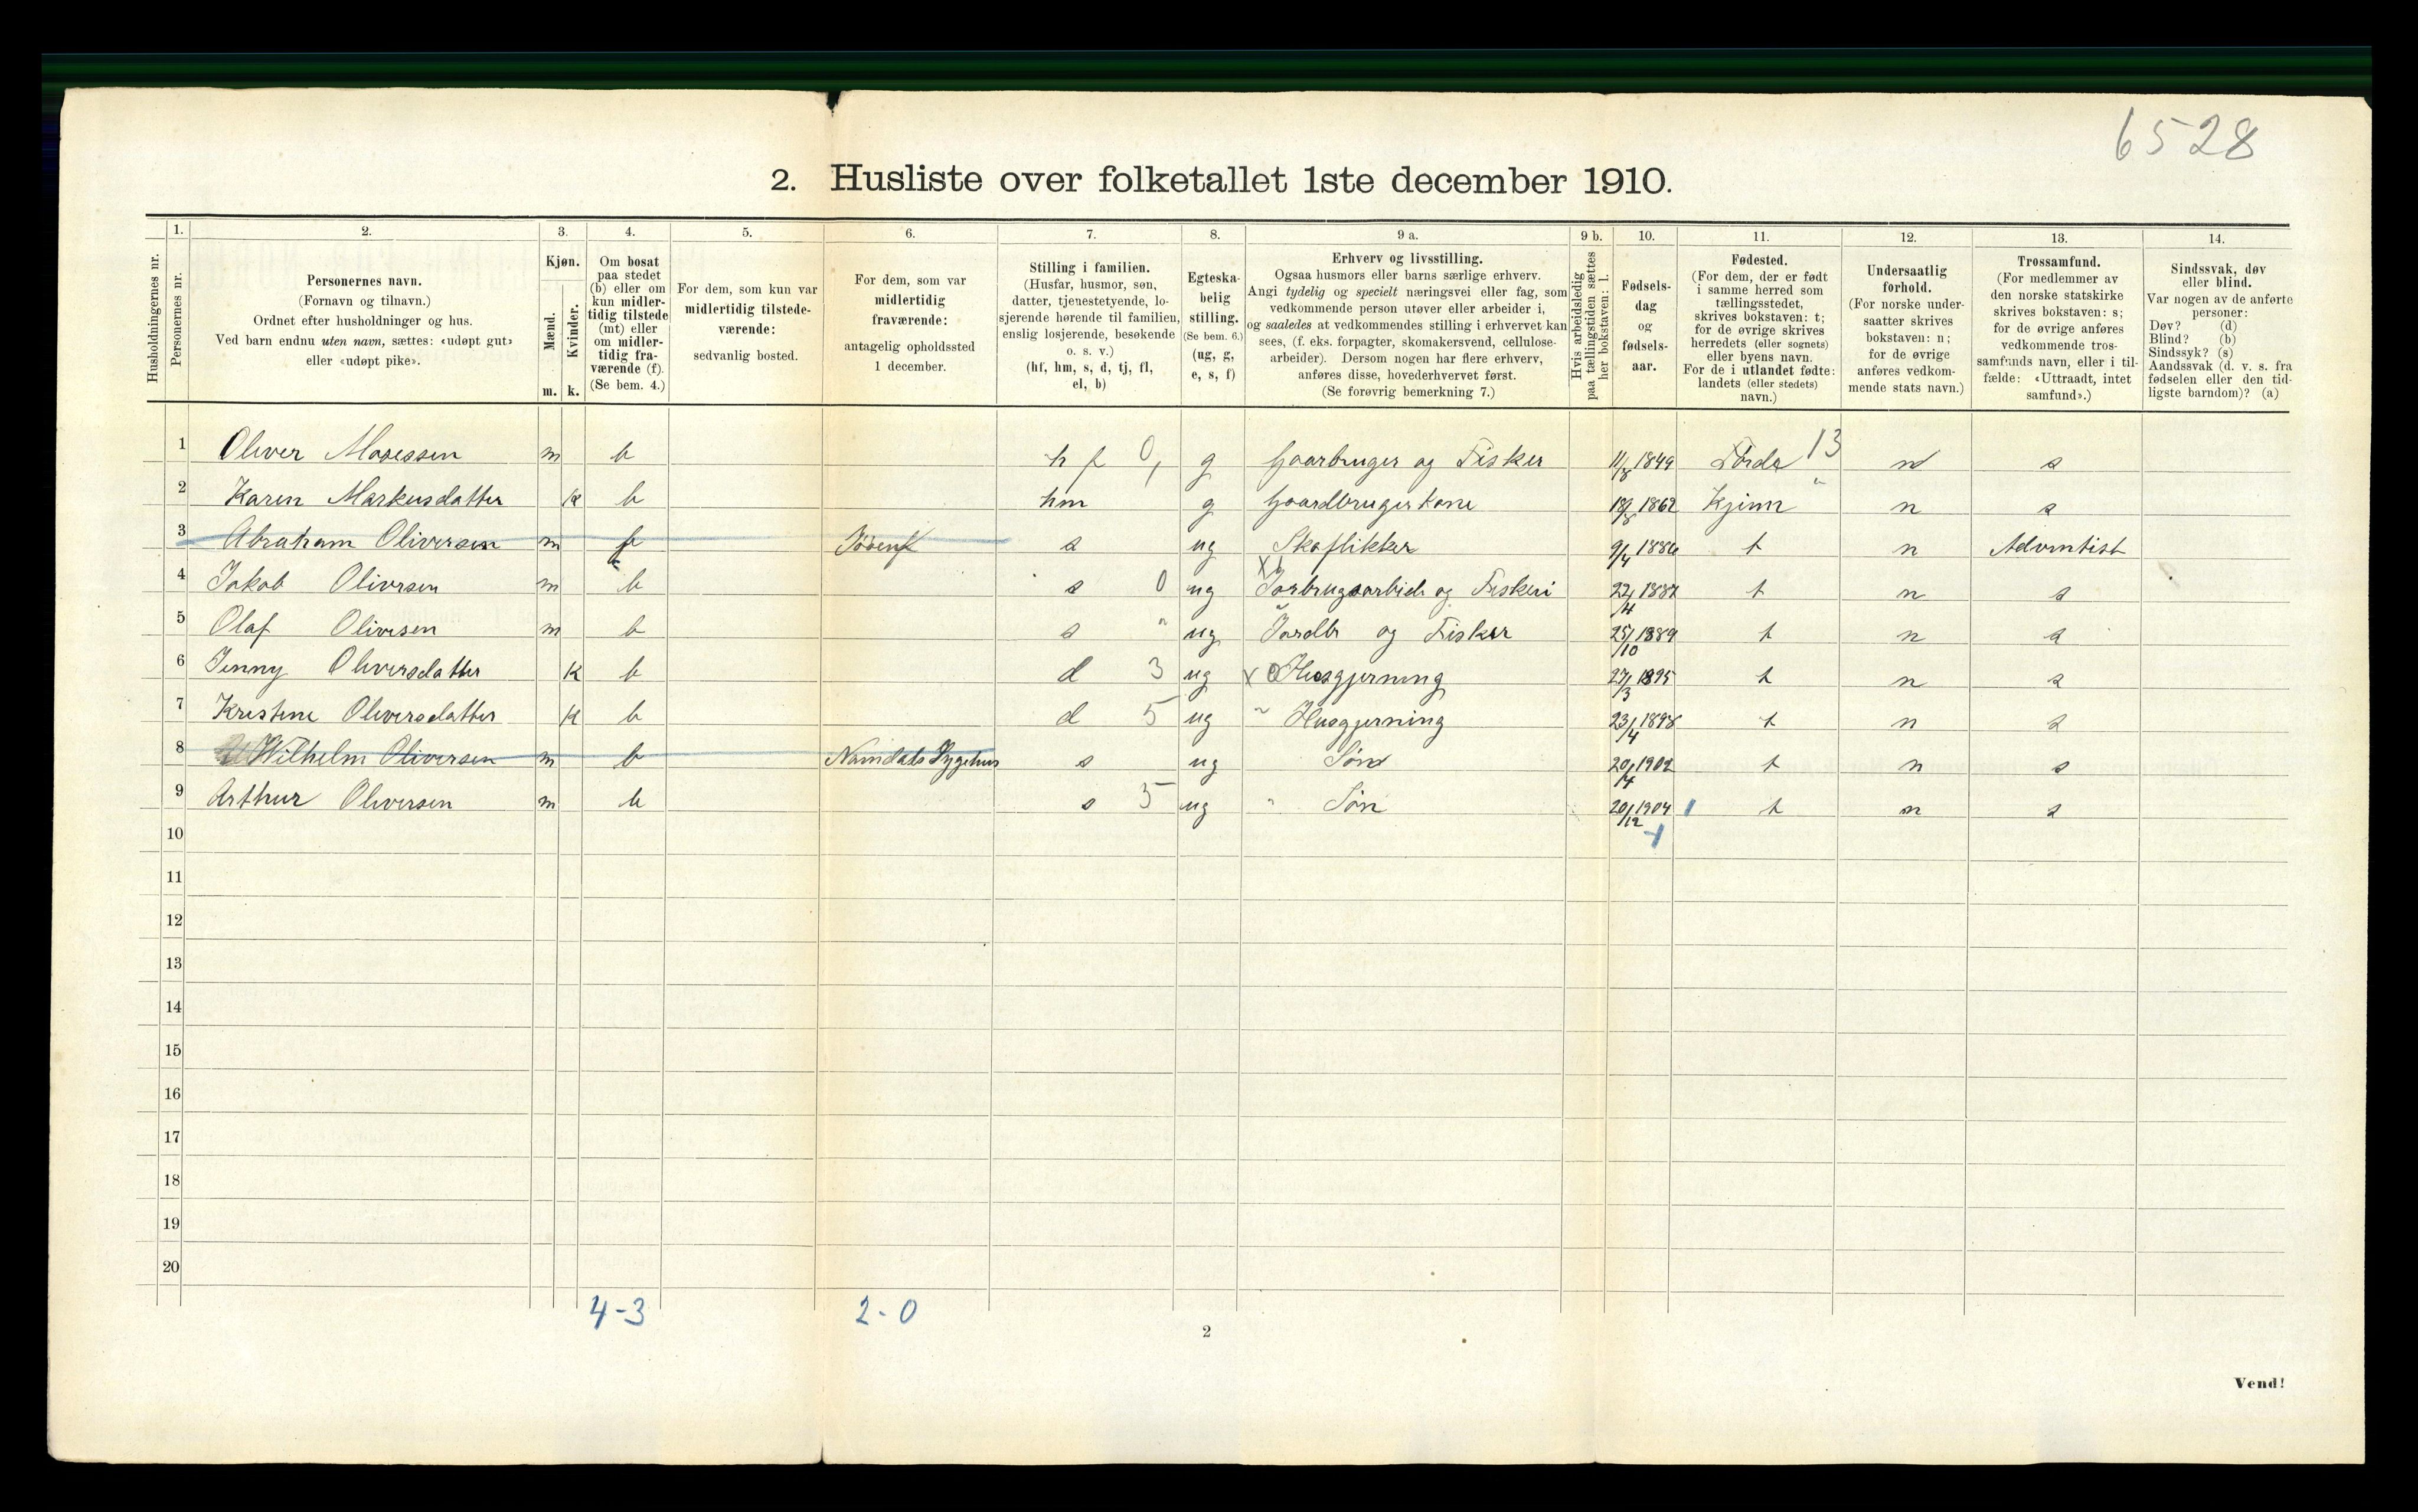 6528
2. Husliste over folketallet 1ste december 1910.
Husholdningernes nr.
1.
Personernes nr.
2.
Personernes navn.
(Fornavn og tilnavn.)
Ordnet efter husholdninger og hus.
Ved barn endnu uten navn, sættes: «udøpt gut»
eller «udøpt pike».
3.
Kjøn.
Mænd.
Kvinder.
m. k.
4.
Om bosat
paa stedet
(b) eller om
kun midler-
tidig tilstede
(mt) eller
om midler-
tidig fra-
værende (f).
(Se bem. 4.)
5.
For dem, som kun var
midlertidig tilstede-
værende:
sedvanlig bosted.
6.
For dem, som var
midlertidig
fraværende:
antagelig opholdssted
1 december.
7.
Stilling i familien.
(Husfar, husmor, søn,
datter, tjenestetyende, lo-
sjerende hørende til familien,
enslig losjerende, besøkende
o. s. v.)
(hf, hm, s, d, tj, fl,
el, b)
8.
Egteska-
belig
stilling.
(Se bem. 6.)
(ug, g,
e, s, f)
9 a.
Erhverv og livsstilling.
Ogsaa husmors eller barns særlige erhverv.
Angi tydelig og specielt næringsvei eller fag, som
vedkommende person utøver eller arbeider i,
og saaledes at vedkommendes stilling i erhvervet kan
sees, (f. eks. forpagter, skomakersvend, cellulose-
arbeider). Dersom nogen har flere erhverv,
anføres disse, hovederhvervet først.
(Se forøvrig bemerkning 7.)
9 b.
Hvis arbeidsledig
paa tællingstiden sættes
her bokstaven: l.
10.
Fødsels-
dag
og
fødsels-
aar.
11.
Fødested.
(For dem, der er født
i samme herred som
tællingsstedet,
skrives bokstaven: t;
for de øvrige skrives
herredets (eller sognets)
eller byens navn.
For de i utlandet fødte:
landets (eller stedets)
navn.)
12.
Undersaatlig
forhold.
(For norske under-
saatter skrives
bokstaven: n;
for de øvrige
anføres vedkom-
mende stats navn.)
13.
Trossamfund.
(For medlemmer av
den norske statskirke
skrives bokstaven: s;
for de øvrige anføres
vedkommende tros-
samfunds navn, eller i til-
fælde: «Uttraadt, intet
samfund».)
14.
Sindssvak, døv
eller blind.
Var nogen av de anførte
personer:
Døv? (d)
Blind? (b)
Sindssyk? (s)
Aandssvak (d. v. s. fra
fødselen eller den tid-
ligste barndom)? (a)
1 Oliver Mosessen m b h f 0, g Gaarbruger og Fisker 11/8 1849 Förde 13 n s
2 Karen Markusdatter k b hm g Gaardbrugerkone 18/8 1862 Kjinn " n s
3 Abraham Oliversen m s ug Skoflikker 9/4 1886 t n Adventist
4 Jakob Oliversen m b s 0 ug Jorbrugsarbide og Fiskeri 22/4 1887 t n s
5 Olaf Oliversen m b s " ug Jordbr og Fisker 25/10 1889 t n s
6 Jenny Oliversdatter k b d 3 ug x Husgjerning 27/3 1895 t n s
7 Kristine Oliversdatter k b d 5 ug " Husgjerning 23/4 1898 t n s
8 Wilhelm Oliversen m b Namdals Sygehus s ug Sön 20/4 1902 t n s
9 Arthur Oliversen m b s 5 ug " Sön 20/12 1904 t n s
10
11
12
13
14
15
16
17
18
19
20
4-3 2-0
2
Vend!